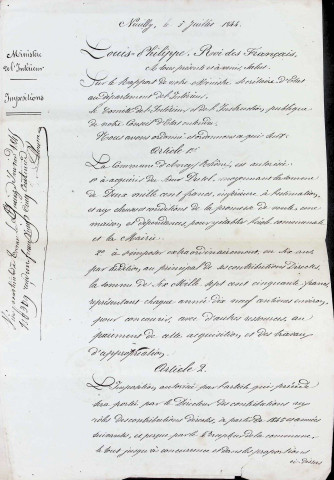 Neuilly, le 5 Juillet 1844.
Ministère
de l'Intérieur
Impositions
Louis-Philippe, Roi des Français,
à tous présents et à venir, Salut.
Sur le rapport de notre Ministre Secrétaire d'Etat
au département de l'Intérieur,
Le Comité de l'Intérieur et de l'Instruction publique
de notre Conseil d'Etat entendu,
Nous avons ordonné et ordonnons ce qui suit:
Article 1er
La Commune d' est autorisée
1° à acquérir du Sieur moyennant la somme
de Deux mille cent francs, inférieure à l'estimation,
et aux clauses et conditions de la promesse de vente, une
maison et dépendances pour y établir l'école communale
et la Mairie.
2° à s'imposer extraordinairement, en six ans
par addition au principal de ses contributions Directes,
la somme de six mille sept cent cinquante francs,
représentant chaque année dix neuf centimes environ,
pour concourir, avec d'autres ressources, au
paiement de cette acquisition et des travaux
d'appropriation.
Article 2.
L'Imposition autorisée par l'article qui précède
sera portée par le Directeur des contributions aux
rôles des contributions directes, à partir de 1845 et années
suivantes, et perçue par le Percepteur de la commune,
le tout jusqu'à concurrence et dans les proportions
ci-dessus